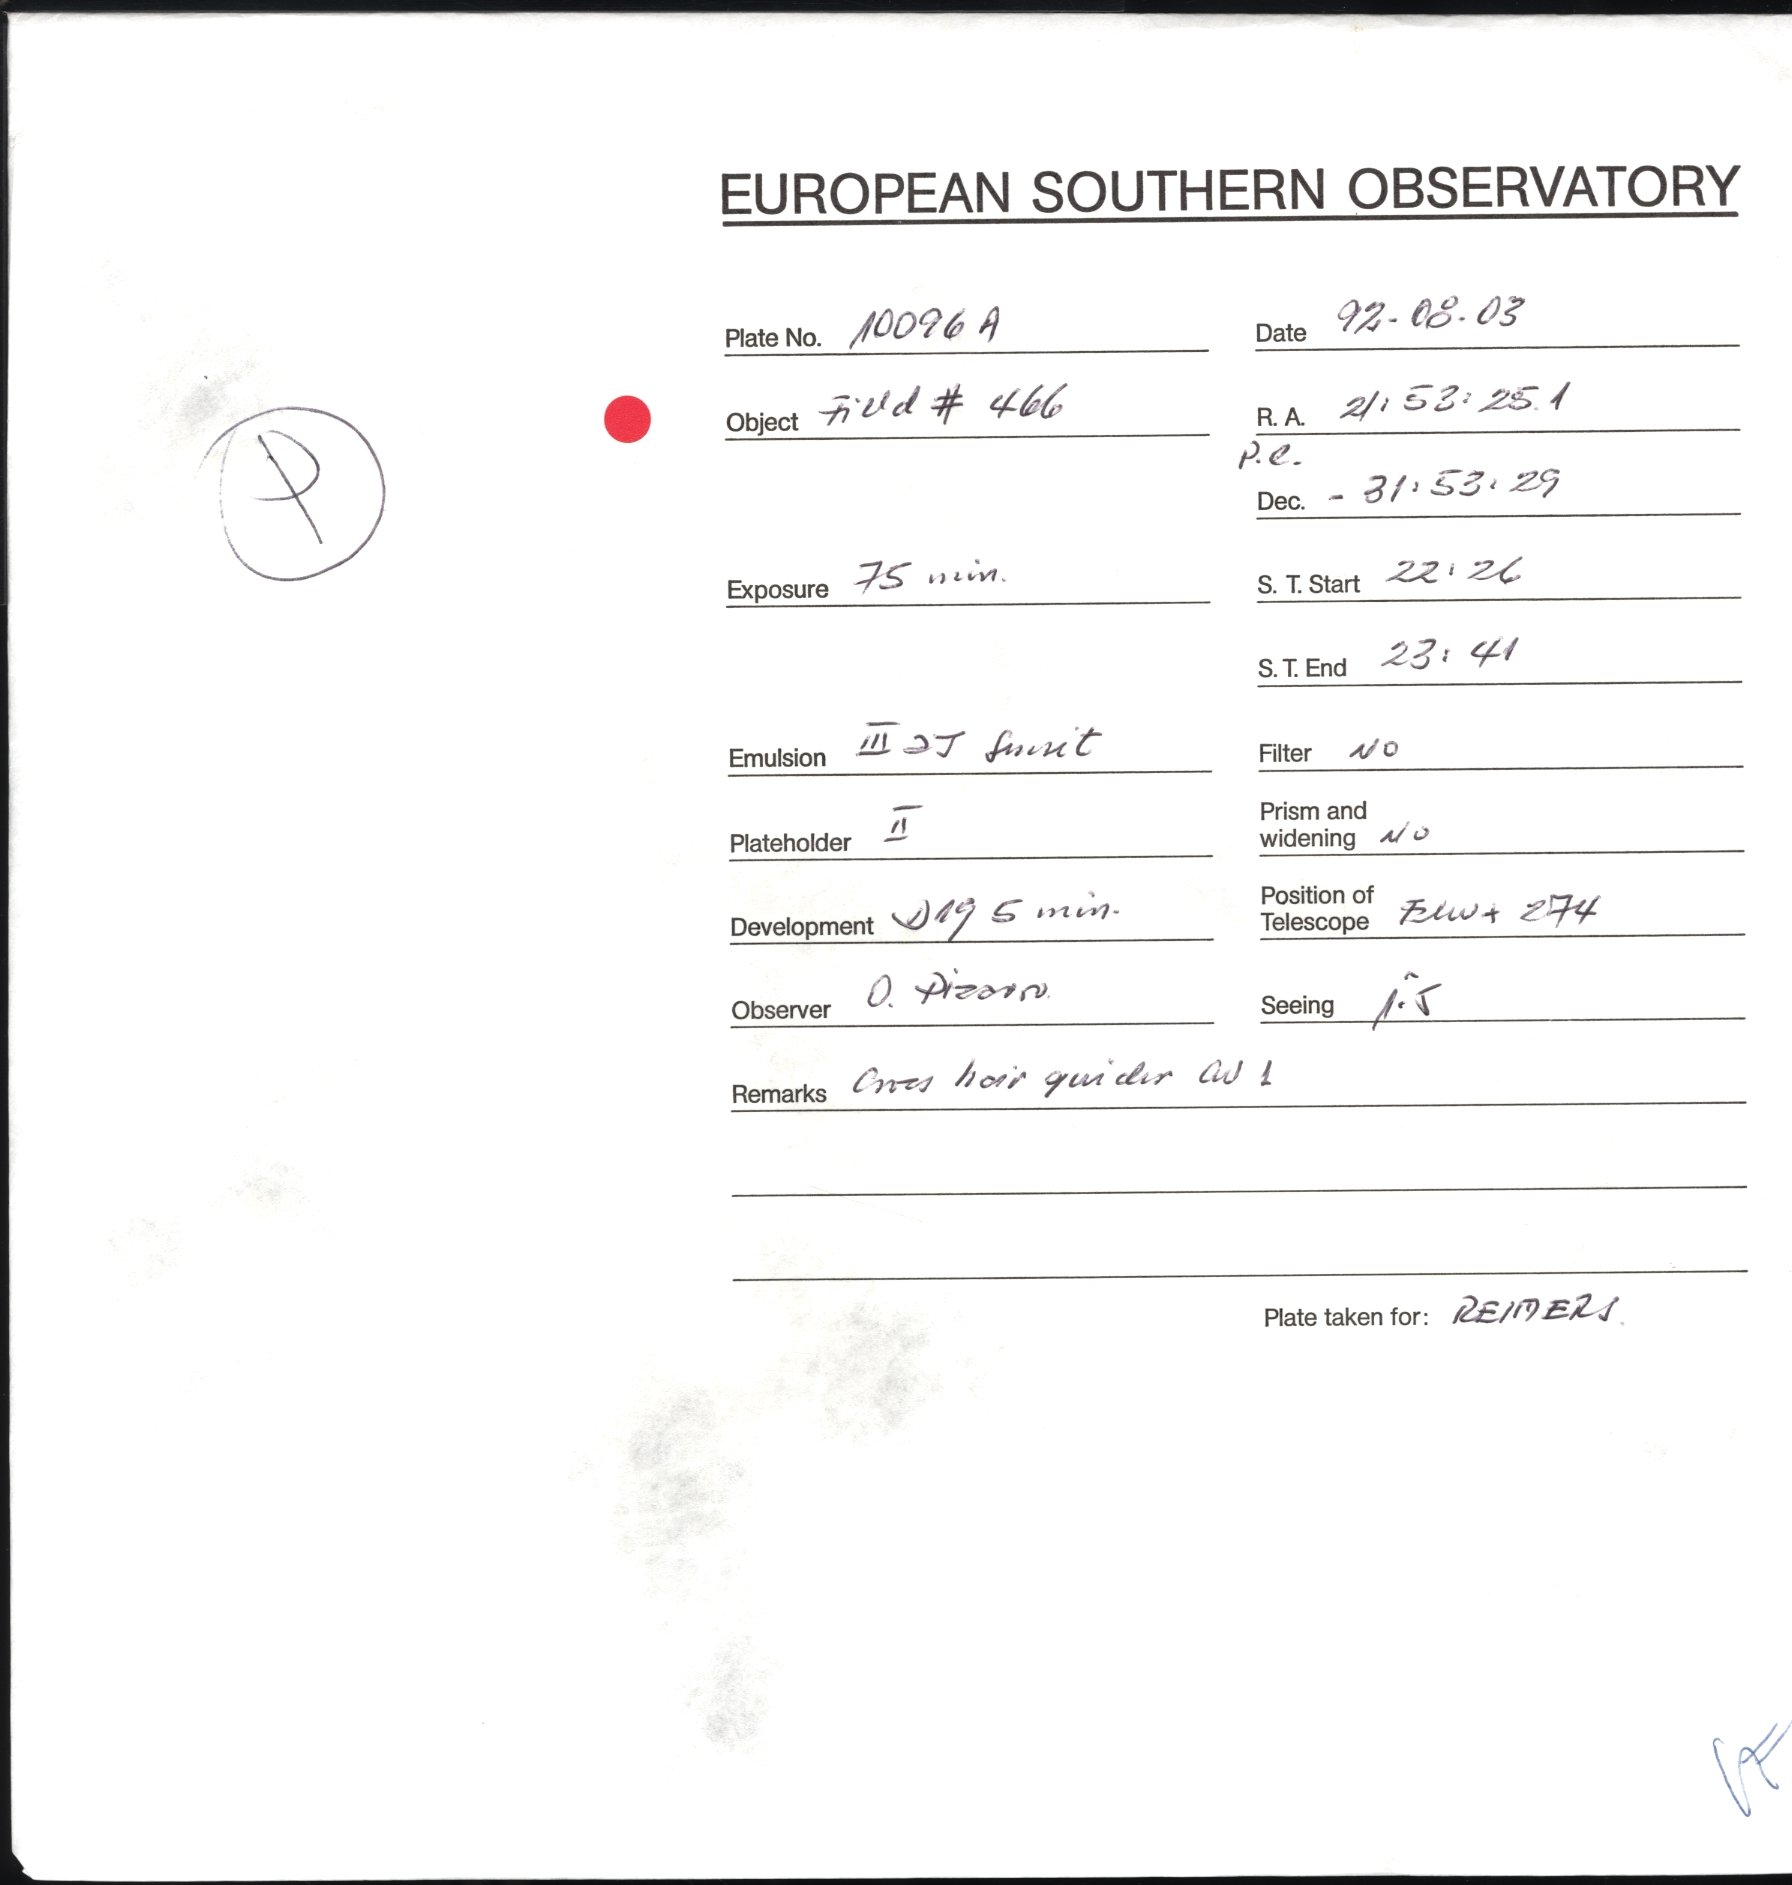 EUROPEAN SOUTHERN OBSERVATORY
Plate No. 10096 A
Date 92-08-03
Object Field # 466
R. A. 21:53:25.1
P.C.
Dec. - 31:53:29
Exposure 75 min.
S. T. Start 22:26
S. T. End 23:41
Emulsion III aJ
Filter NO
Plateholder II
Prism and
widening NO
Development D19 5 min.
Position of
Telescope 274
Observer O. Pizarro.
Seeing 1".5
Remarks Cross hair guider 1
Plate taken for: REIMERS.